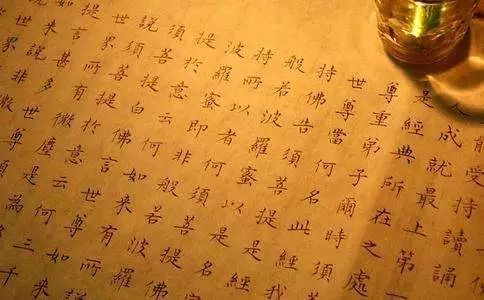 能受持讀誦
人成就最上第
是經典所在之處
尊重弟子爾時須
世尊當何名此經我
持佛告須菩提是經
般若波羅蜜以是名
持所以者何須菩提佛
波羅蜜即非般若波羅
提於意云何如來有所
須菩提白佛言世尊如來
說須菩提於意云何三千
世界所有微塵是為
提言甚多世尊須
如來說非微
世界